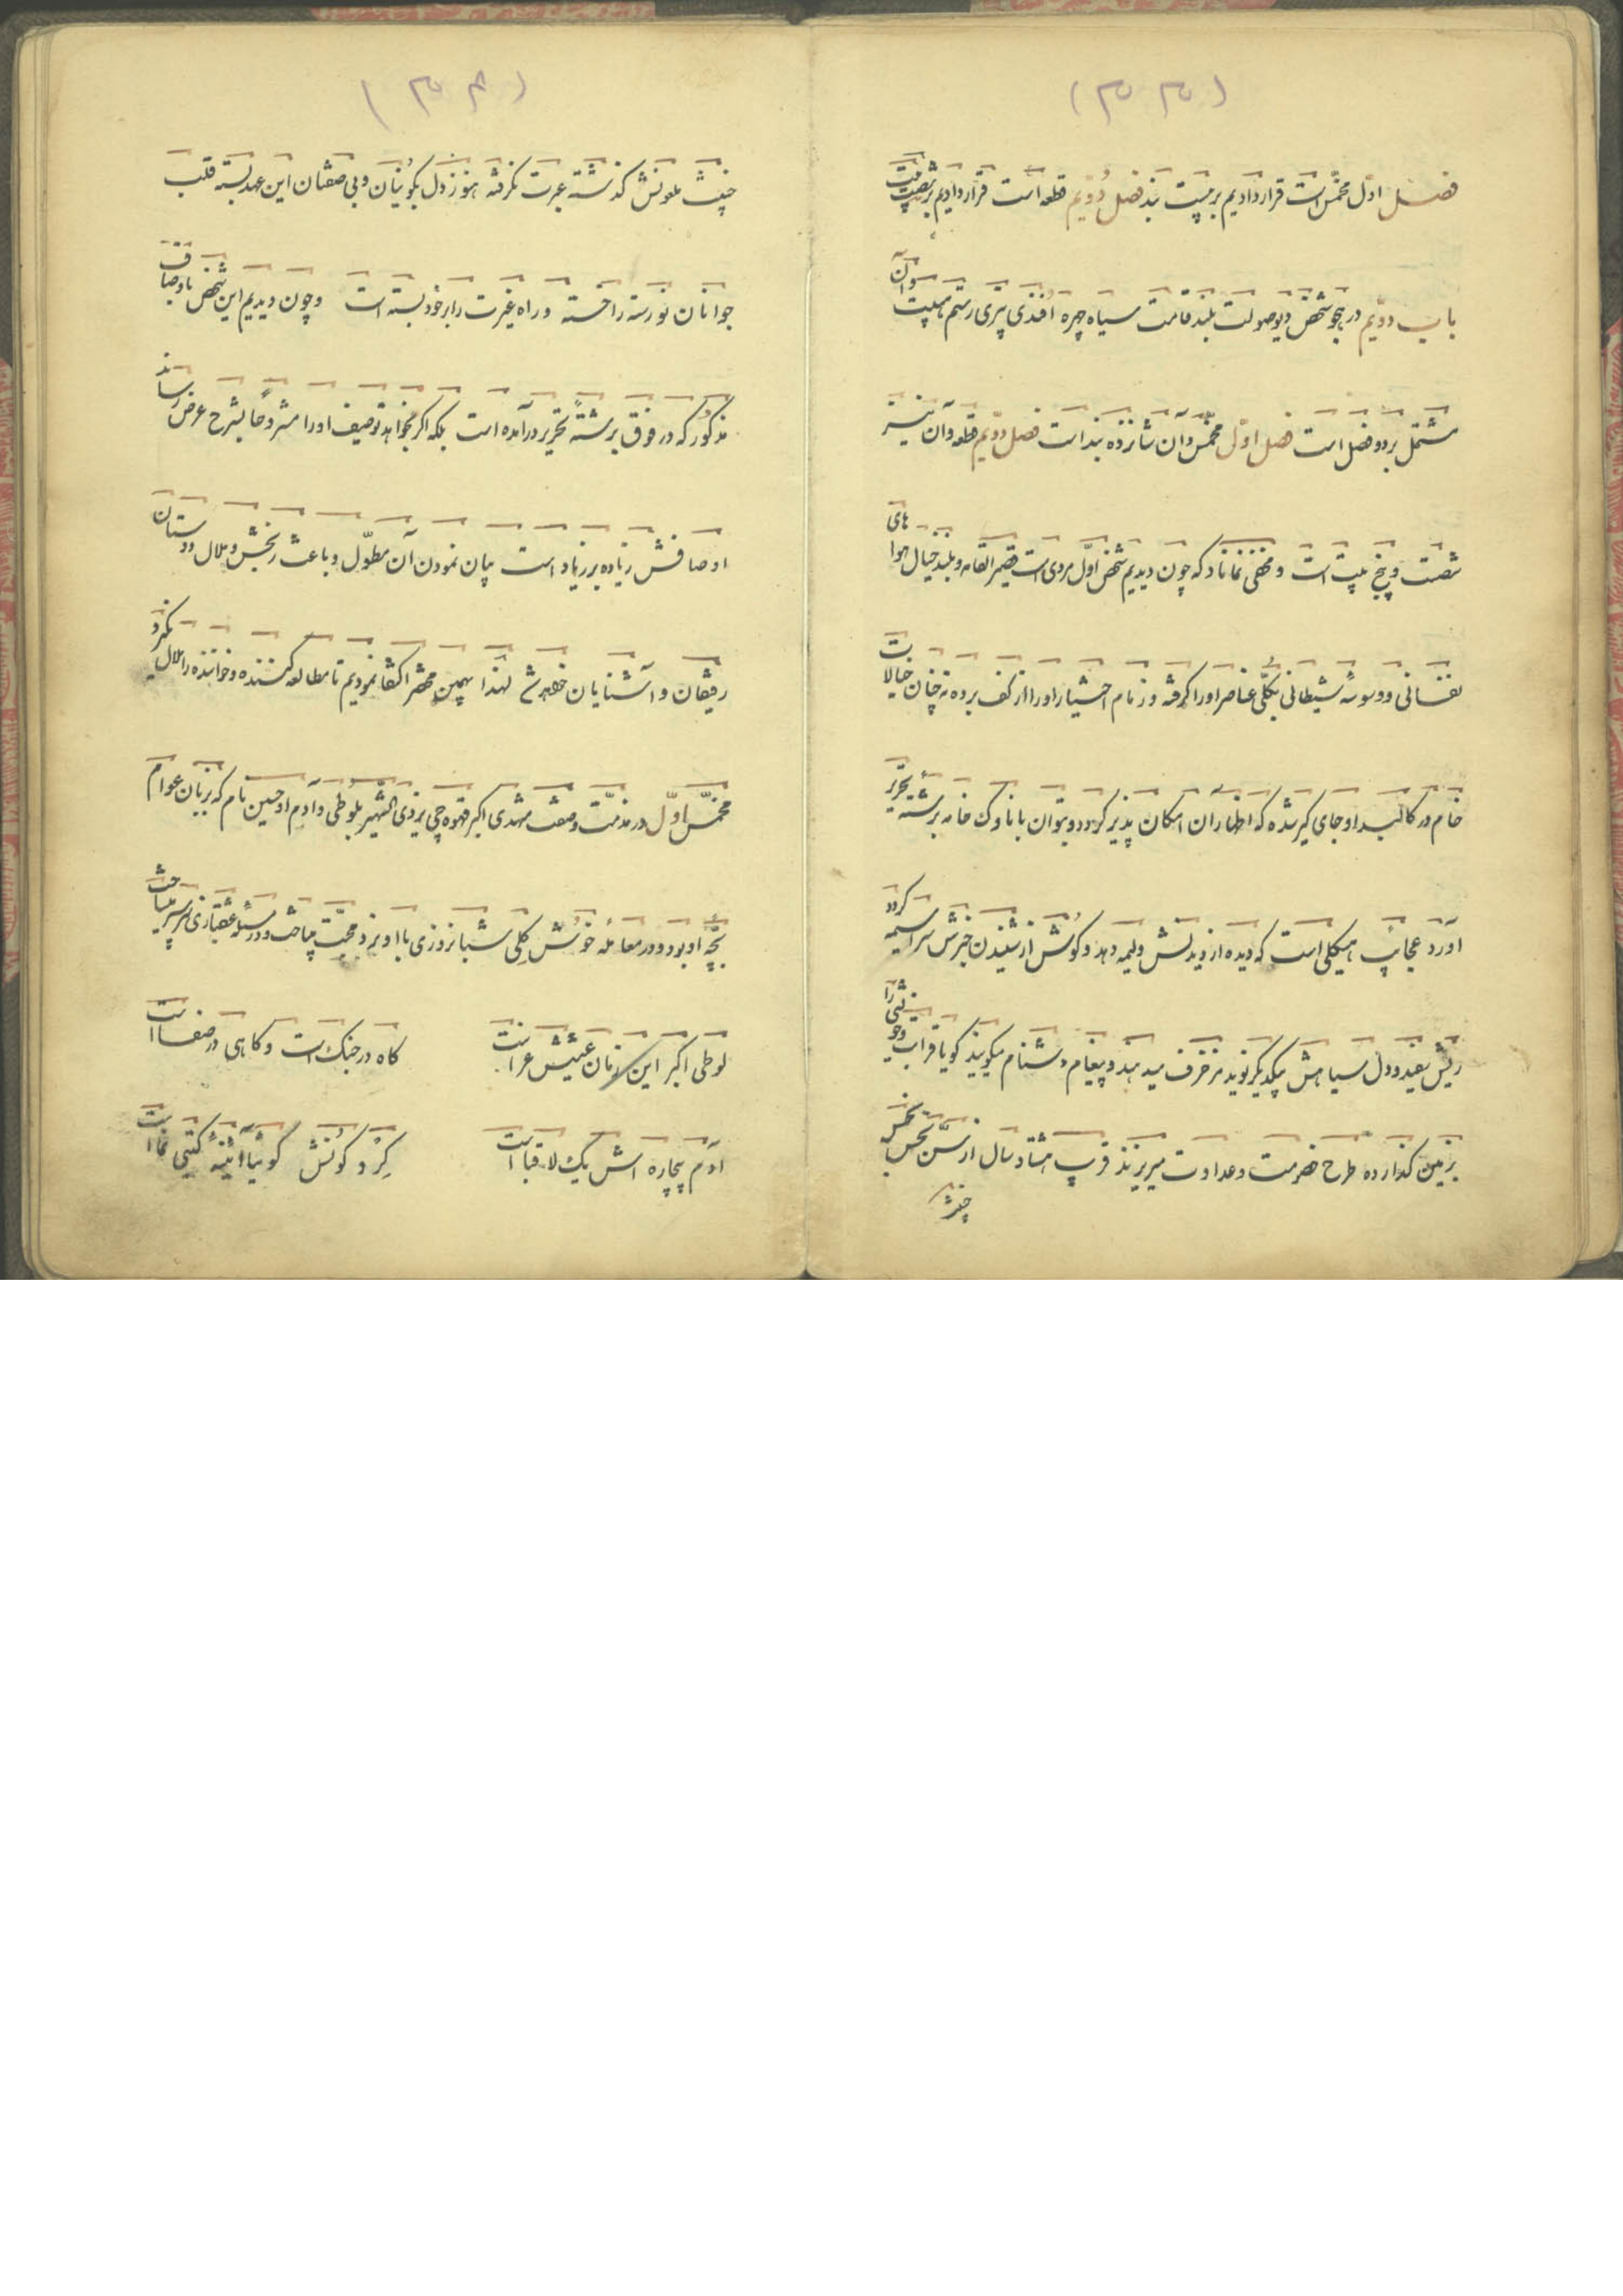 (۳۳)
فصل اوّل مخمّس است قرار دادیم بر بیست بند فصل دُوّیم قطعه است قرار دادیم بر شصت بیت
باب دوّیم در هجو شخص دیو صولت بلند قامت سیاه چهره افندی پتری رستم هیبت و آن
مشتمل بر دو فصل است فصل اوّل مخمّس و آن شانزده بند است فصل دوّیم قطعه و آن نیز
شصت و پنج بیت است و مخفی نماناد که چون دیدیم شخص اوّل مردی است قصیر القامه و بلند خیال هوا های
نفسانی و وسوسهٔ شیطانی بکلّی عناصر او را گرفته و زمام اختیار او را از کف برده نه چنان خیالات
خام در کالبد او جای گیر شده که اظهار آن امکان پذیر گردد و بتوان با ناوک خامه برشتهٔ تحریر
آورد عجایب هیکلی است که دیده از دیدنش ولیمه دهد و گوش از شنیدن خبرش سراسیمه گردد
ریش سفید و دل سیاهش بیکدیگر نوید مزخرف میدهند و پیغام دشنام میگویند گویا قرابت و خویشی را
بزمین گذارده طرح خصومت و عداوت میریزند قریب هشتاد سال از سنّ نحس نجس
خبیث
(۳۴)
خبیث ملونش گذشته عبرت نگرفته هنوز دل بکونیان و بی صفتان این عهد بسته قلب
جوانان نورسته را خسته و راه غیرت را بر خود بسته است و چون دیدیم این شخص باوصاف
مذکور که در فوق برشتهٔ تحریر درآمده است بلکه اگر بخواهد توصیف او را مشروحاً بشرح عرض رساند
اوصافش زیاده بر زیاد است بیان نمودن آن مطوّل و باعث رنجش و ملال دوستان
رفیقان و آشنایان خواهد شد لهذا بهمین مختصر اکتفا نمودیم تا مطالعه کننده و خواننده را ملال نگیرد
مخمّس اوّل در مذمّت وصف مشهدی اکبر قهوه چی یزدی الشّهیر بلوطی و آدم او حسین نام که بزبان عوام
بچّه او بود و در معامله خودش کلی شبانروزی با او نرد محبّت میباخت و در مسئله عشقبازی بر سر میساخت
لوطی اکبر این زمان عیشش عزاست    گاه در جنگ است و گاهی در صفاست
آدم بیچاره اش یک لا قباست    گِرد کونش گوئیا آئینهٔ گیتی نماست